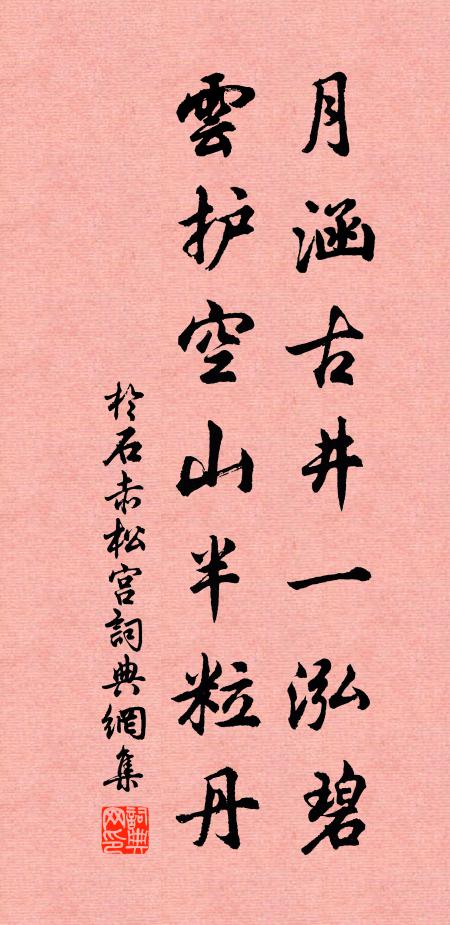 月涵古井一泓碧
雲护空山半粒丹
於石赤松宫詞典網集
詞典
网印